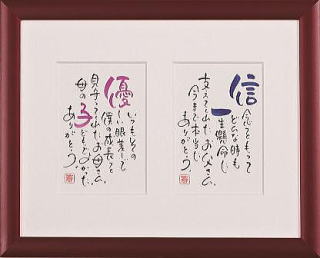 信念をもって
どんな時も
一生懸命に
支えてくれたお父さん。
今まで本当に
ありがとう。
いつもいつも
優しい眼差しで
僕の成長を
見守ってくれたお母さん。
母の子どもでよかった。
ありがとう。